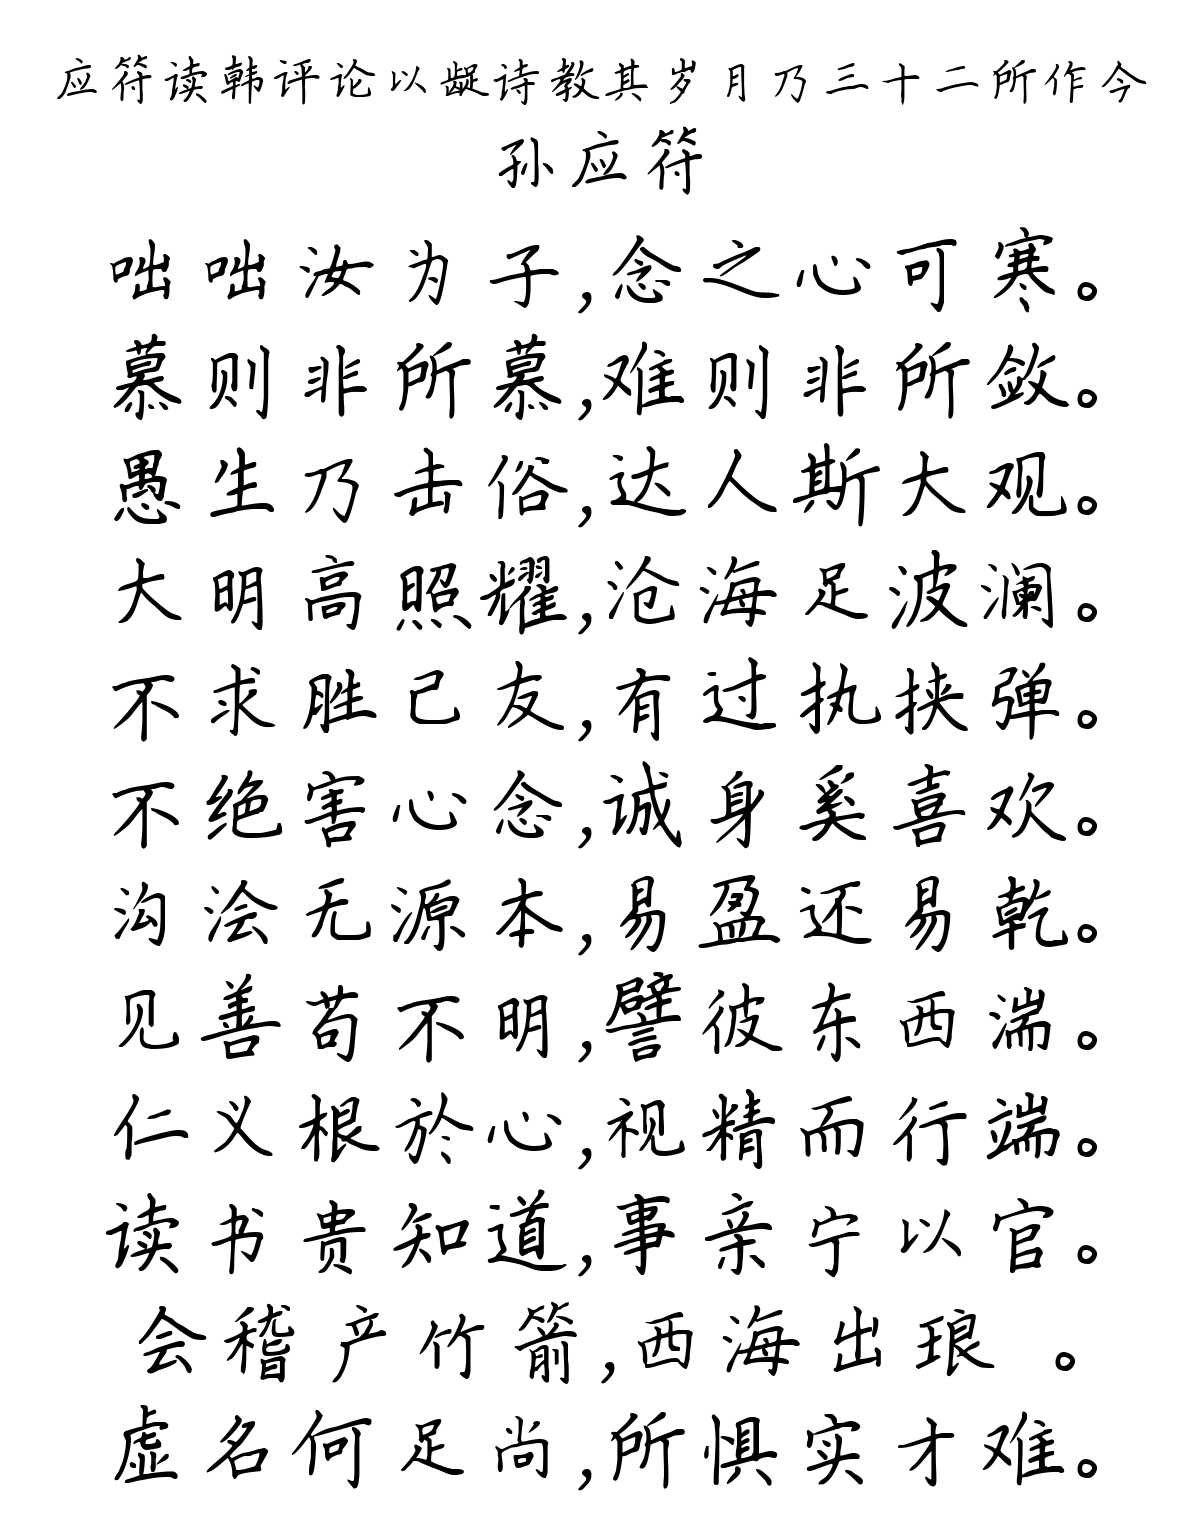 应符读韩评论以龊诗教其岁月乃三十二所作今
孙应符
咄咄汝为子,念之心可寒。
慕则非所慕,难则非所敛。
愚生乃击俗,达人斯大观。
大明高照耀,沧海足波澜。
不求胜己友,有过执挟弹。
不绝害心念,诚身奚喜欢。
沟浍无源本,易盈还易乾。
见善苟不明,譬彼东西湍。
仁义根於心,视精而行端。
读书贵知道,事亲宁以官。
会稽产竹箭,西海出琅 。
虚名何足尚,所惧实才难。